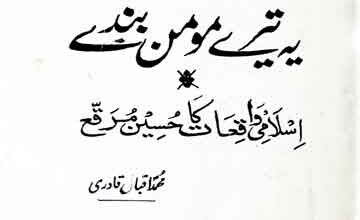 یہ تیرے مومن بندے
اِسلامی واقعات کا حُسین مُرقّع
محمد اقبال قادری